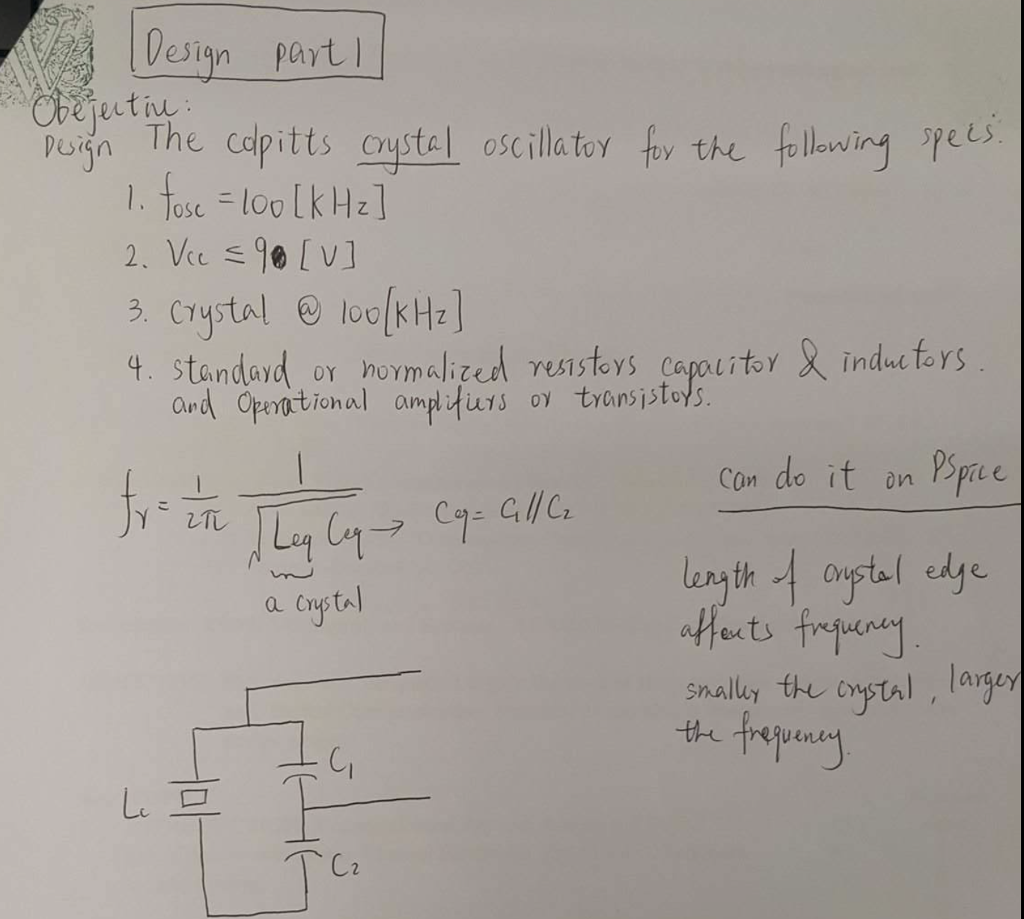 Design part 1
Obejective:
Design The colpitts crystal oscillator for the following specs.
1. fosc = 100 [kHz]
2. Vcc ≤ 9 [V]
3. Crystal @ 100 [kHz]
4. standard or normalized resistors capacitor & inductors.
and Operational amplifiers or transistors.
fr = 1/2π 1/√Leq Ceq → Ceq = C1 // C2
a crystal
can do it on PSpice
length of crystal edge
affects frequency.
smaller the crystal, larger
the frequency.
C1
Lc
C2